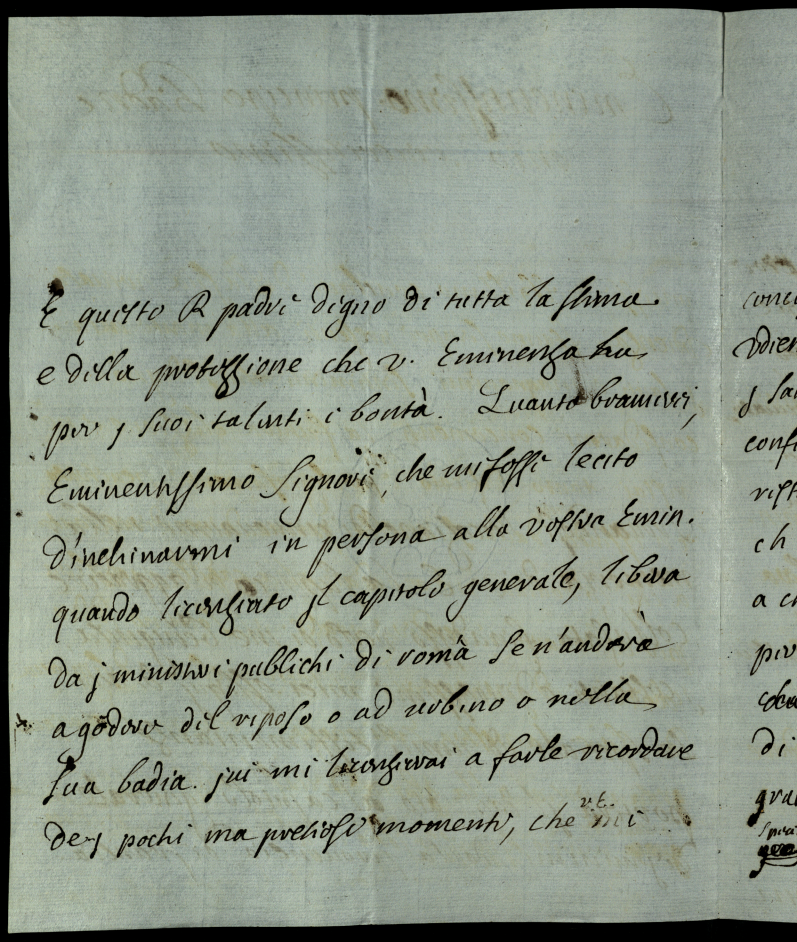 E questo R padre digno di tutta la stima
e della protezzione che v. Eminenza ha
per j suoi talenti e bontà. Quanto bramerei,
Eminentissimo Signore, che mi fosse lecito
d'inchinarmi in persona alla vostra Emin.
quando licenziato jl capitolo generale, libera
da j ministri publichi di roma se n'anderà
a godere del riposo o ad urbino o nella
sua badia. jui mi
a farle ricordare
de j pochi ma pretiosi momenti, che v.E. mi
conc
udien
j sa
conf
rist
ch
a c
per
di
gra